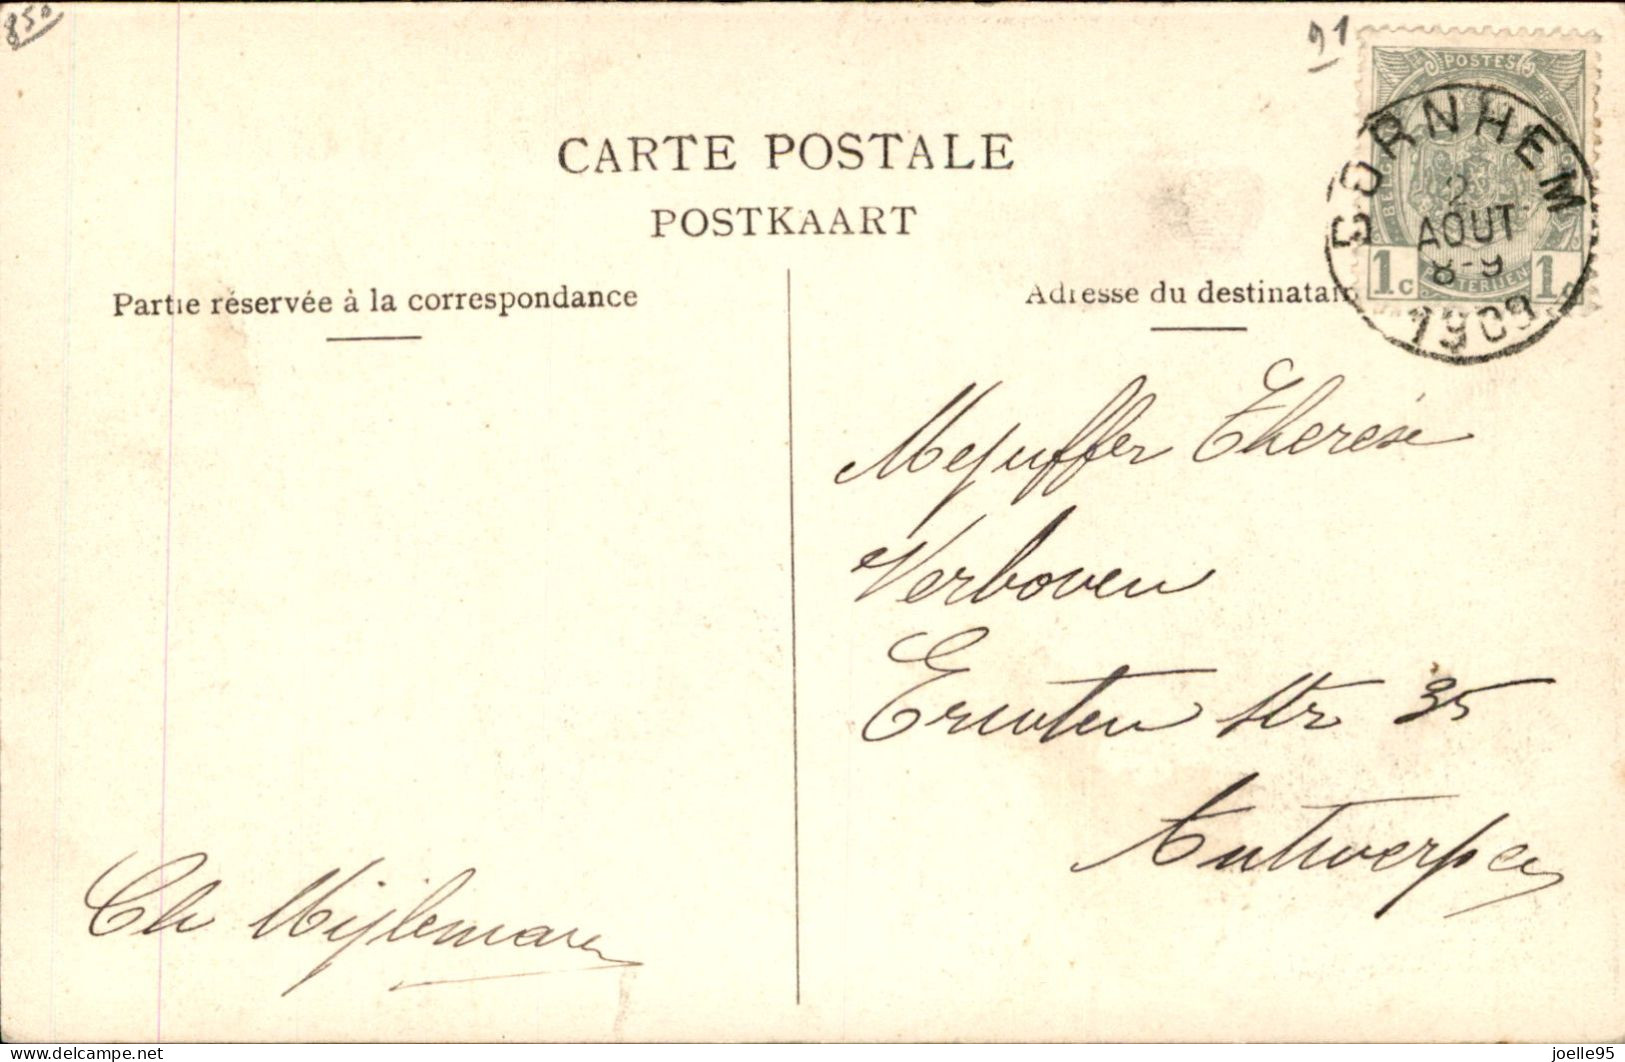 850
91
POSTES
BORNHEM
2
AOUT
8-9
1909
1c 1c
POSTERIJEN
CARTE POSTALE
POSTKAART
Partie réservée à la correspondance
Adresse du destinatair
Mejuffer Therese
Verboven
str 35
Antwerpen
Ch
delcampe.net
joelle95